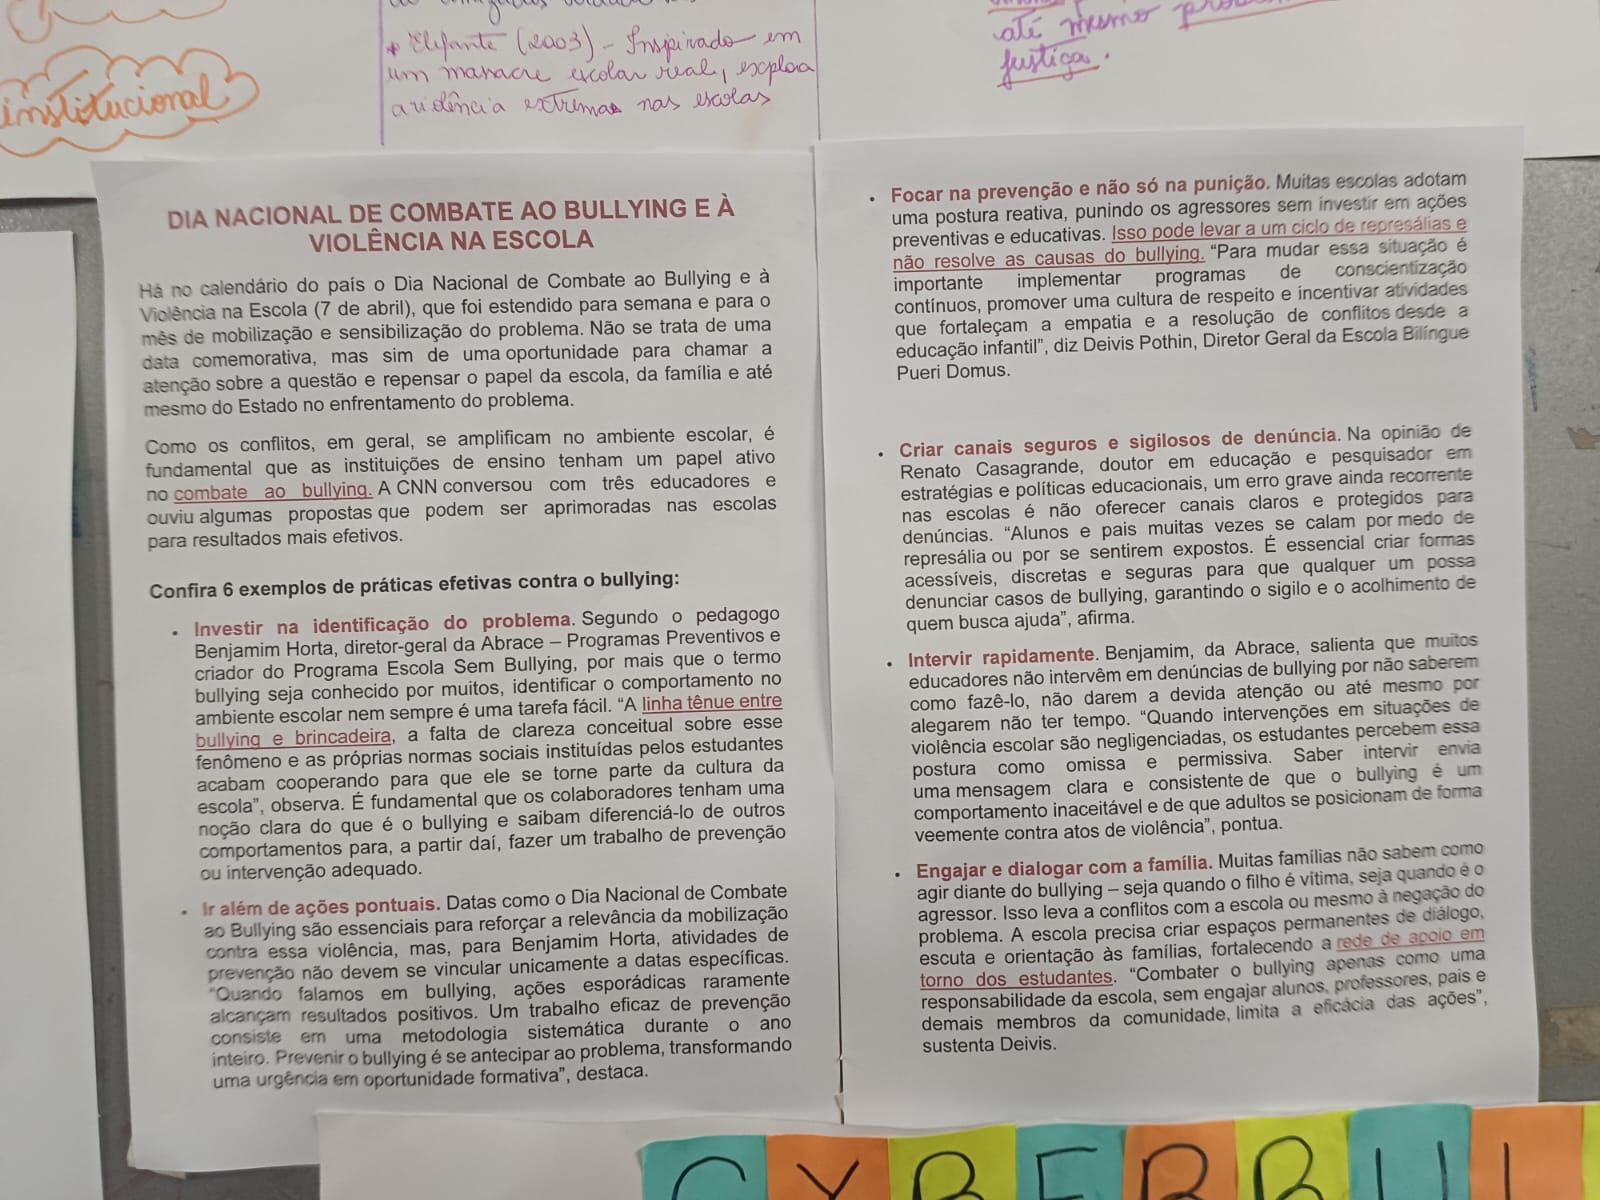 institucional
* Elefante (2003) - Inspirado em
um massacre escolar real, explora
a violência extrema nas escolas
até mesmo
justiça.
DIA NACIONAL DE COMBATE AO BULLYING E À
VIOLÊNCIA NA ESCOLA
Há no calendário do país o Dia Nacional de Combate ao Bullying e à
Violência na Escola (7 de abril), que foi estendido para semana e para o
mês de mobilização e sensibilização do problema. Não se trata de uma
data comemorativa, mas sim de uma oportunidade para chamar a
atenção sobre a questão e repensar o papel da escola, da família e até
mesmo do Estado no enfrentamento do problema.
Como os conflitos, em geral, se amplificam no ambiente escolar, é
fundamental que as instituições de ensino tenham um papel ativo
no combate ao bullying. A CNN conversou com três educadores e
ouviu algumas propostas que podem ser aprimoradas nas escolas
para resultados mais efetivos.
Confira 6 exemplos de práticas efetivas contra o bullying:
• Investir na identificação do problema. Segundo o pedagogo
Benjamim Horta, diretor-geral da Abrace – Programas Preventivos e
criador do Programa Escola Sem Bullying, por mais que o termo
bullying seja conhecido por muitos, identificar o comportamento no
ambiente escolar nem sempre é uma tarefa fácil. “A linha tênue entre
bullying e brincadeira, a falta de clareza conceitual sobre esse
fenômeno e as próprias normas sociais instituídas pelos estudantes
acabam cooperando para que ele se torne parte da cultura da
escola”, observa. É fundamental que os colaboradores tenham uma
noção clara do que é o bullying e saibam diferenciá-lo de outros
comportamentos para, a partir daí, fazer um trabalho de prevenção
ou intervenção adequado.
• Ir além de ações pontuais. Datas como o Dia Nacional de Combate
ao Bullying são essenciais para reforçar a relevância da mobilização
contra essa violência, mas, para Benjamim Horta, atividades de
prevenção não devem se vincular unicamente a datas específicas.
“Quando falamos em bullying, ações esporádicas raramente
alcançam resultados positivos. Um trabalho eficaz de prevenção
consiste em uma metodologia sistemática durante o ano
inteiro. Prevenir o bullying é se antecipar ao problema, transformando
uma urgência em oportunidade formativa”, destaca.
• Focar na prevenção e não só na punição. Muitas escolas adotam
uma postura reativa, punindo os agressores sem investir em ações
preventivas e educativas. Isso pode levar a um ciclo de represálias e
não resolve as causas do bullying. “Para mudar essa situação é
importante implementar programas de conscientização
contínuos, promover uma cultura de respeito e incentivar atividades
que fortaleçam a empatia e a resolução de conflitos desde a
educação infantil”, diz Deivis Pothin, Diretor Geral da Escola Bilíngue
Pueri Domus.
• Criar canais seguros e sigilosos de denúncia. Na opinião de
Renato Casagrande, doutor em educação e pesquisador em
estratégias e políticas educacionais, um erro grave ainda recorrente
nas escolas é não oferecer canais claros e protegidos para
denúncias. “Alunos e pais muitas vezes se calam por medo de
represália ou por se sentirem expostos. É essencial criar formas
acessíveis, discretas e seguras para que qualquer um possa
denunciar casos de bullying, garantindo o sigilo e o acolhimento de
quem busca ajuda”, afirma.
• Intervir rapidamente. Benjamim, da Abrace, salienta que muitos
educadores não intervêm em denúncias de bullying por não saberem
como fazê-lo, não darem a devida atenção ou até mesmo por
alegarem não ter tempo. “Quando intervenções em situações de
violência escolar são negligenciadas, os estudantes percebem essa
postura como omissa e permissiva. Saber intervir envia
uma mensagem clara e consistente de que o bullying é um
comportamento inaceitável e de que adultos se posicionam de forma
veemente contra atos de violência”, pontua.
• Engajar e dialogar com a família. Muitas famílias não sabem como
agir diante do bullying – seja quando o filho é vítima, seja quando é o
agressor. Isso leva a conflitos com a escola ou mesmo à negação do
problema. A escola precisa criar espaços permanentes de diálogo,
escuta e orientação às famílias, fortalecendo a rede de apoio em
torno dos estudantes. “Combater o bullying apenas como uma
responsabilidade da escola, sem engajar alunos, professores, pais e
demais membros da comunidade, limita a eficácia das ações”,
sustenta Deivis.
CYBERBUL